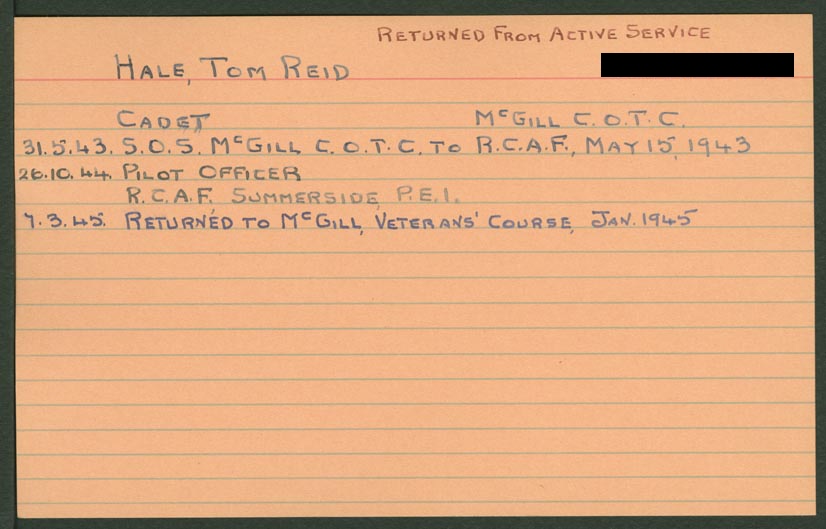 RETURNED FROM ACTIVE SERVICE
HALE, TOM REID
CADET McGILL C.O.T.C.
31.5.43. S.O.S. McGILL C.O.T.C. TO R.C.A.F., MAY 15, 1943
26.10.44. PILOT OFFICER
R.C.A.F. SUMMERSIDE, P.E.I.
7.3.45. RETURNED TO McGILL, VETERANS' COURSE, JAN. 1945